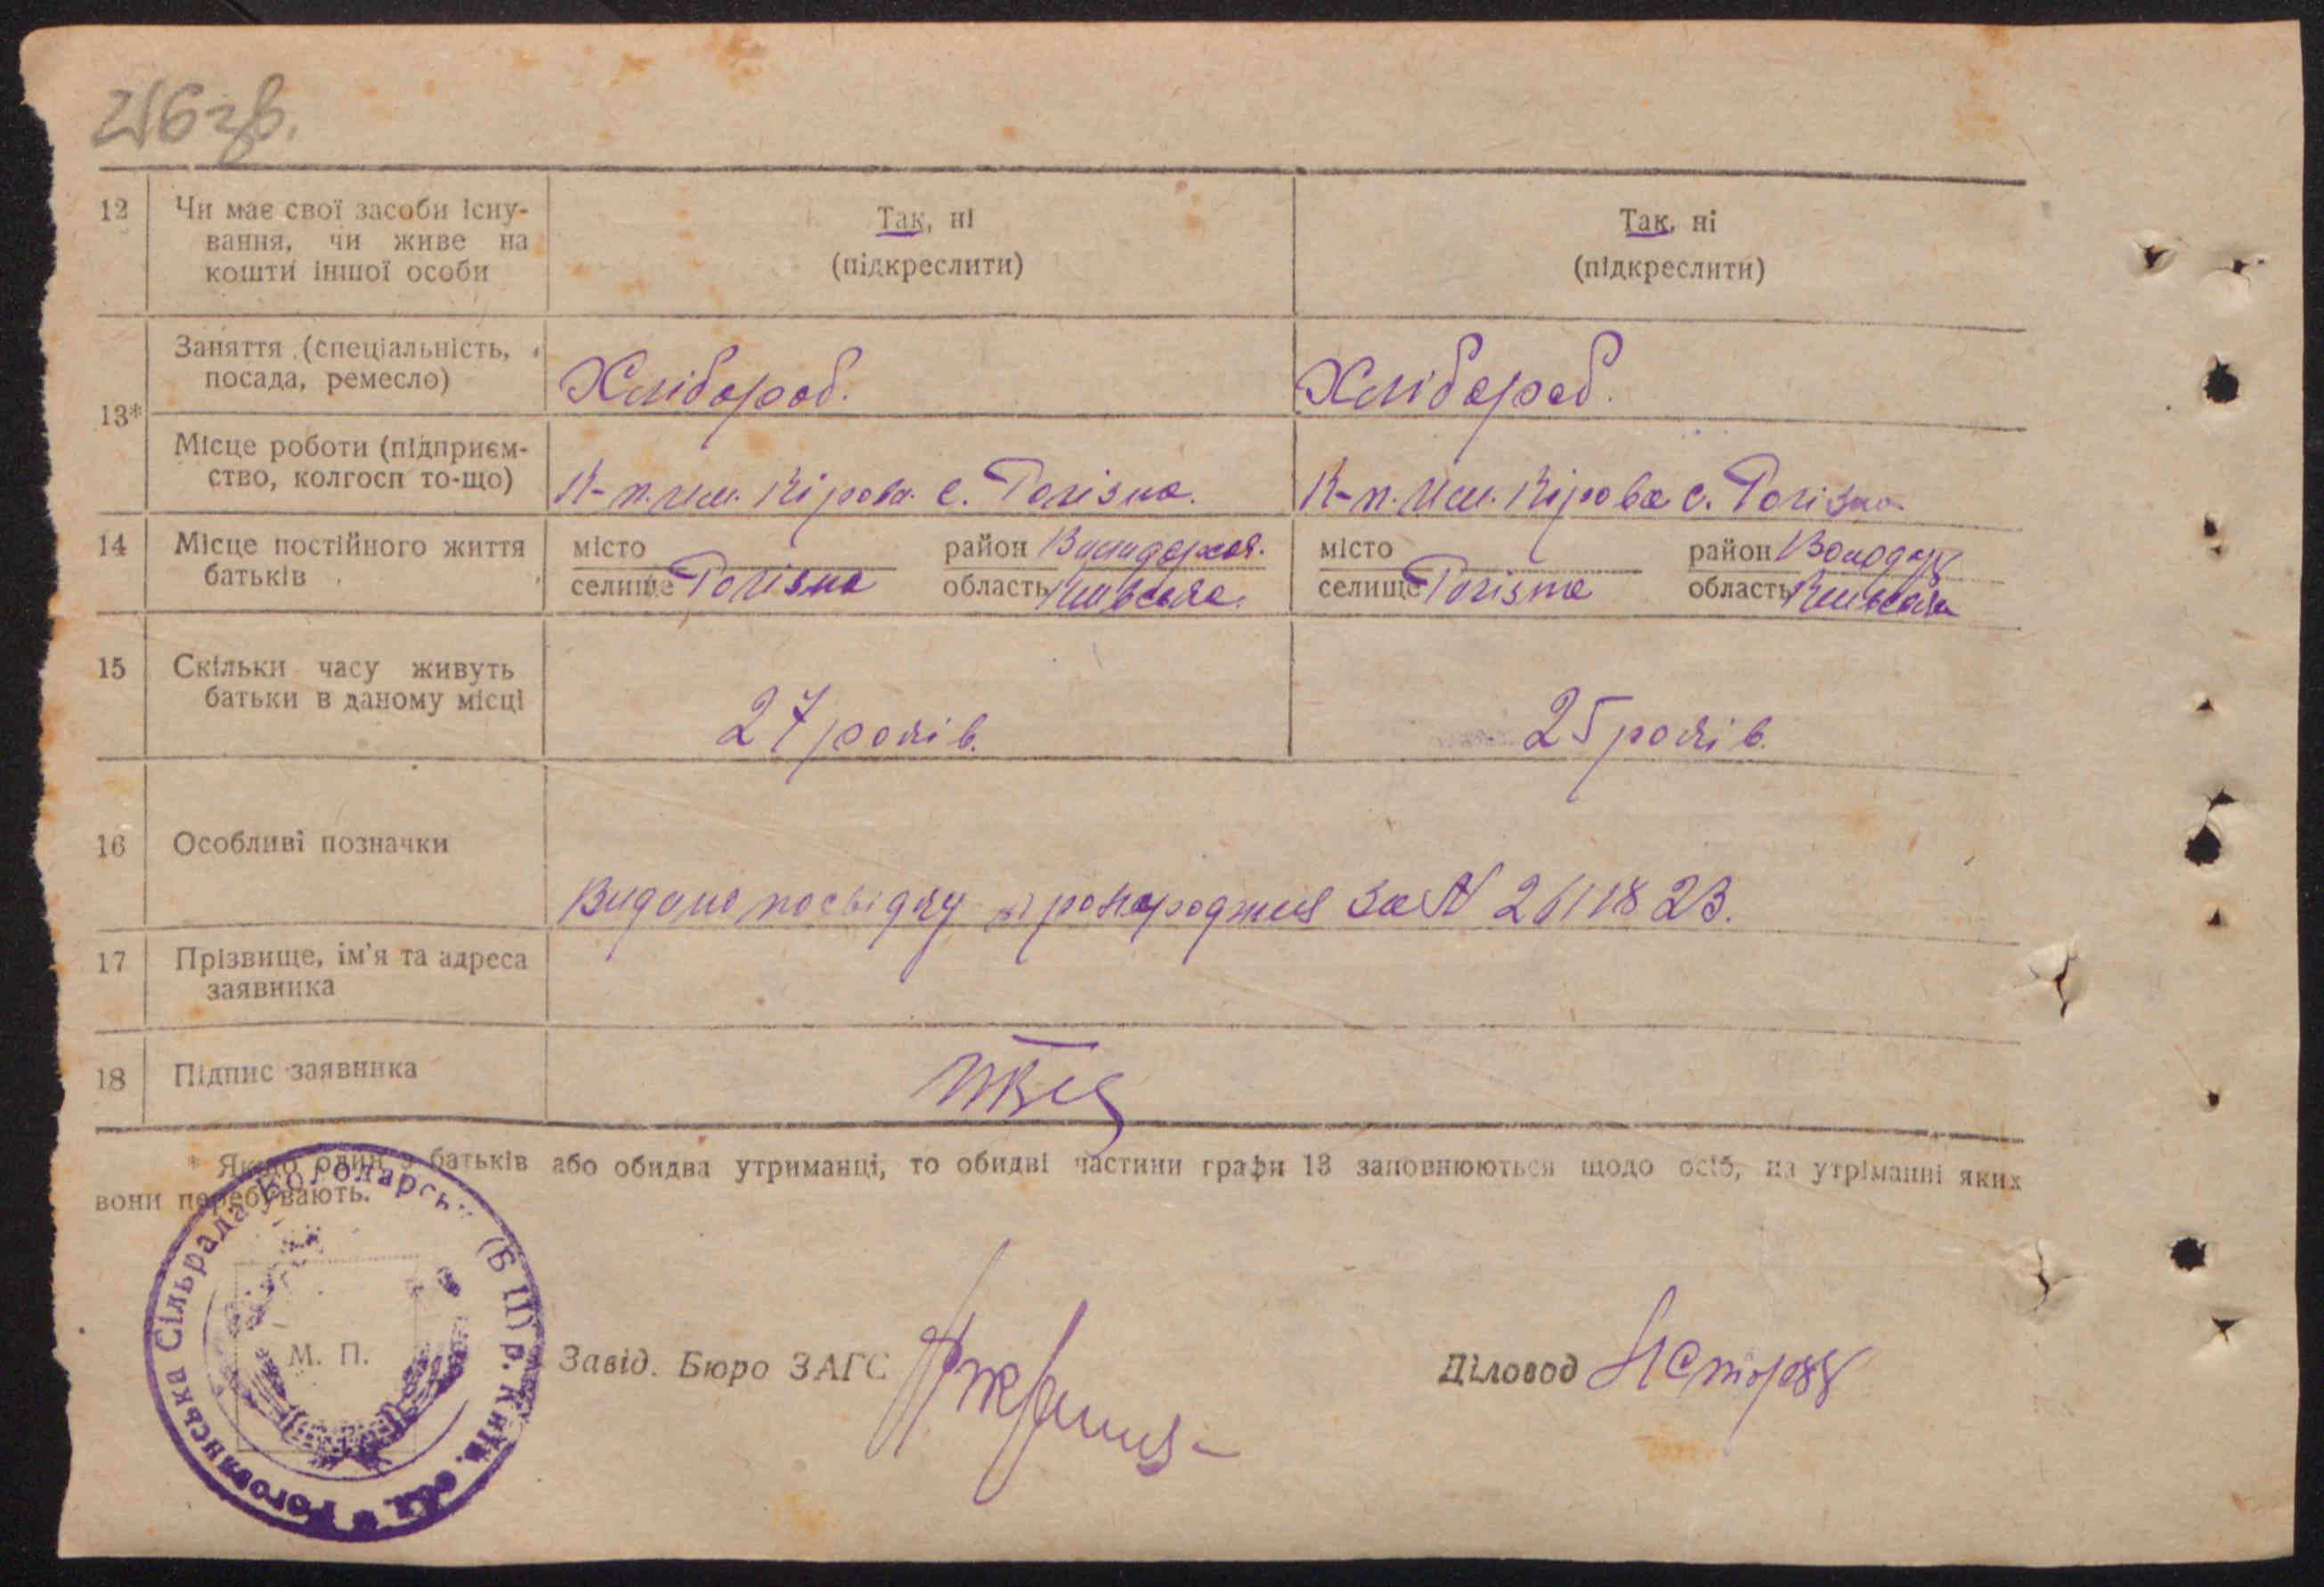 216 зв.
12 Чи має свої засоби існу-
вання, чи живе на
кошти іншої особи
Так, ні
(підкреслити)
Так, ні
(підкреслити)
13*
Заняття (спеціальність,
посада, ремесло)
Хлібороб.
Хлібороб.
Місце роботи (підприєм-
ство, колгосп то-що)
К-п. им. Кірова с. Логізна.
К-п. им. Кірова с. Логізна.
14 Місце постійного життя
батьків
місто
селище Логізна
район Володарськ.
область Київська.
місто
селище Логізна
район Володар
область Київська
15 Скільки часу живуть
батьки в даному місці
27 років.
25 років.
16 Особливі позначки
Видано посвідку про народження за № 261823.
17 Прізвище, ім'я та адреса
заявника
18 Підпис заявника
* Якщо один з батьків або обидва утриманці, то обидві частини графи 13 заповнюються щодо осіб, на утріманні яких
вони перебувають.
Сільрада Володарськ (Б Ц) р. Київ. обл
М. П.
Завід. Бюро ЗАГС
Діловод